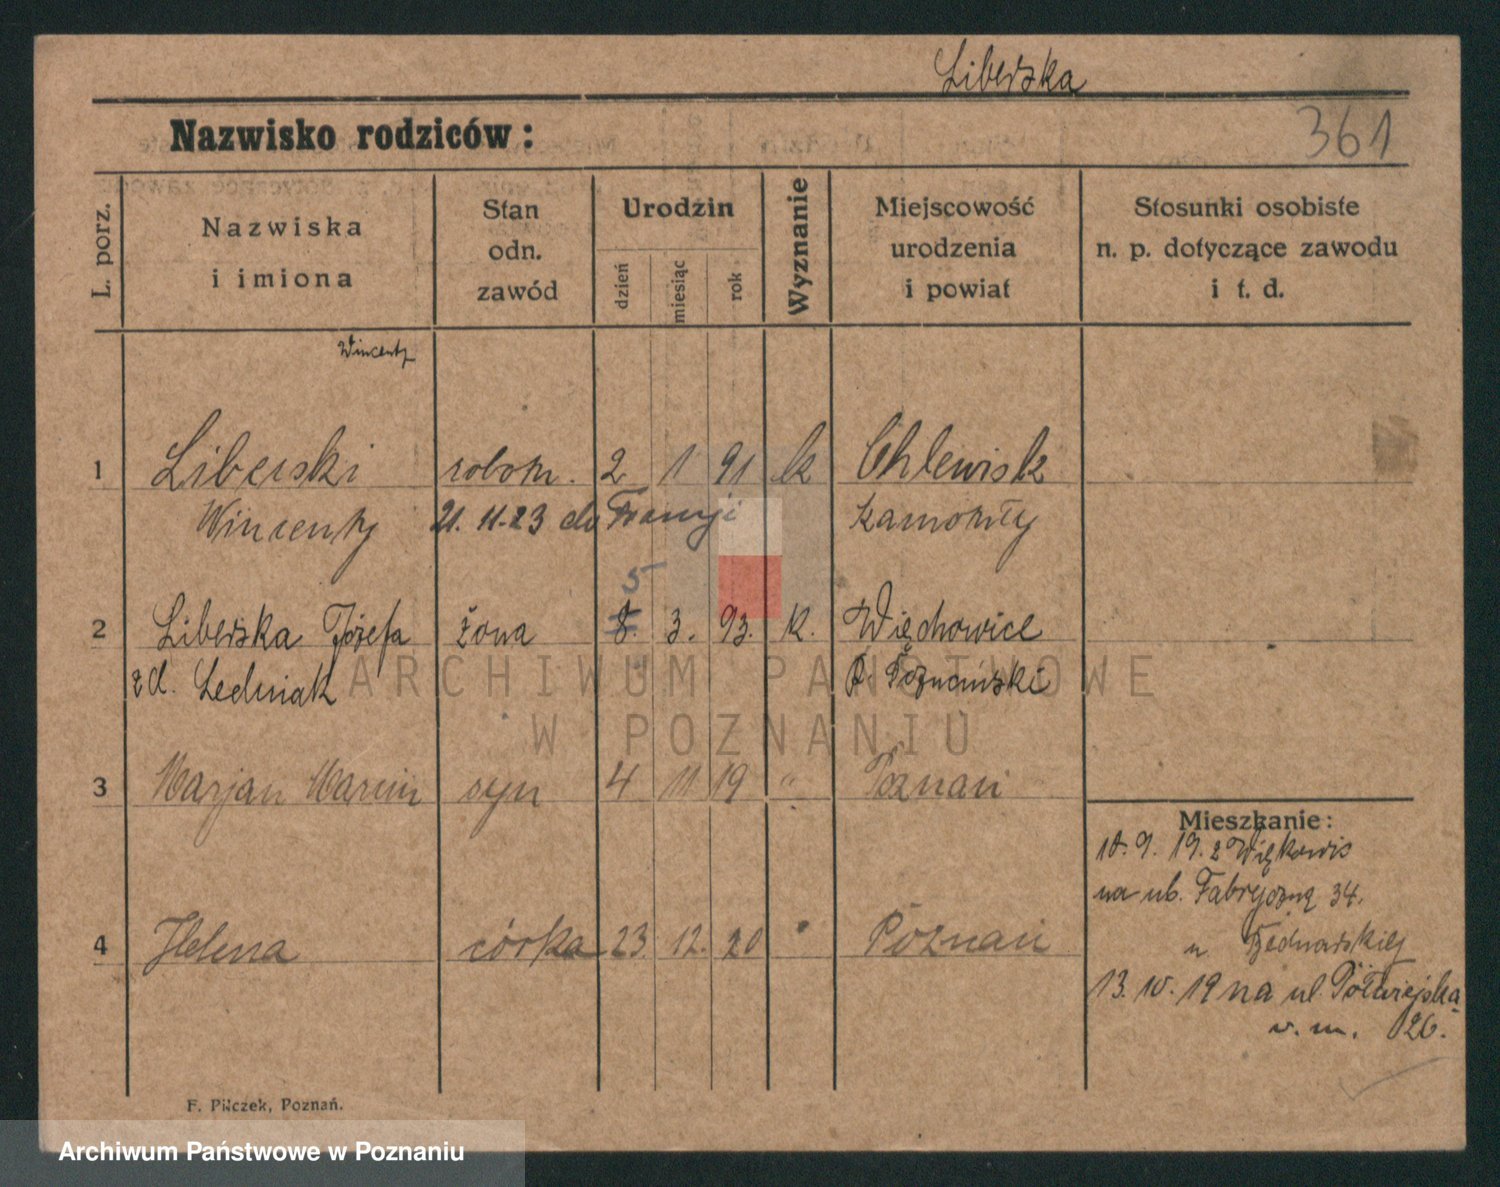 Liberska
Nazwisko rodziców:
361
L. porz.
Nazwiska
i imiona
Stan
odn.
zawód
Urodzin
dzień
miesiąc
rok
Wyznanie
Miejscowość
urodzenia
i powiat
Stosunki osobiste
n. p. dotyczące zawodu
i t. d.
Wincenty
1 Liberski robotn. 2 1 91 k Chlewisk
Wincenty 21. 11. 23 do Francji Szamotuły
5
2 Liberska Józefa żona 8. 3. 93. k. Więchowice
zd. Ledniak p. Poznański
ARCHIWUM PAŃSTWOWE
W POZNANIU
3 Marjan Marcin syn 4 11 19 " Poznań
4 Helena córka 23. 12. 20 " Poznań
Mieszkanie:
18. 9. 19. z Więkowic
na ul. Fabryczną 34.
u Bednarskiej
13. 10. 19 na ul. Półwiejską
26.
F. Pilczek, Poznań.
Archiwum Państwowe w Poznaniu